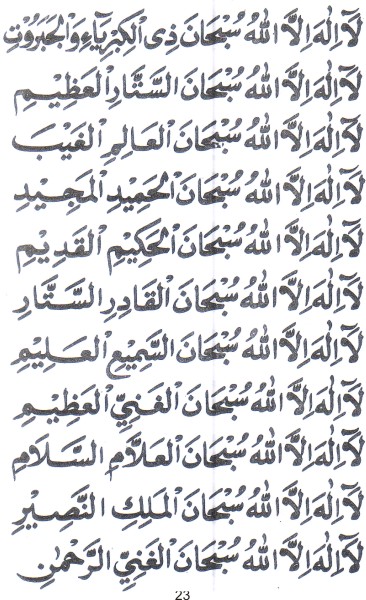 لَآ اِلٰهَ اِلَّا اللهُ سُبْحَانَ ذِى الْكِبْرِيَآءِ وَالْجَبَرُوْتِ
لَآ اِلٰهَ اِلَّا اللهُ سُبْحَانَ السَّتَّارِ الْعَظِيْمِ
لَآ اِلٰهَ اِلَّا اللهُ سُبْحَانَ الْعَالِمِ الْغَيْبِ
لَآ اِلٰهَ اِلَّا اللهُ سُبْحَانَ الْحَمِيْدِ الْمَجِيْدِ
لَآ اِلٰهَ اِلَّا اللهُ سُبْحَانَ الْحَكِيْمِ الْقَدِيْمِ
لَآ اِلٰهَ اِلَّا اللهُ سُبْحَانَ الْقَادِرِ السَّتَّارِ
لَآ اِلٰهَ اِلَّا اللهُ سُبْحَانَ السَّمِيْعِ الْعَلِيْمِ
لَآ اِلٰهَ اِلَّا اللهُ سُبْحَانَ الْغَنِيِّ الْعَظِيْمِ
لَآ اِلٰهَ اِلَّا اللهُ سُبْحَانَ الْعَلَّامِ السَّلَامِ
لَآ اِلٰهَ اِلَّا اللهُ سُبْحَانَ الْمَلِكِ النَّصِيْرِ
لَآ اِلٰهَ اِلَّا اللهُ سُبْحَانَ الْغَنِيِّ الرَّحْمٰنِ
23